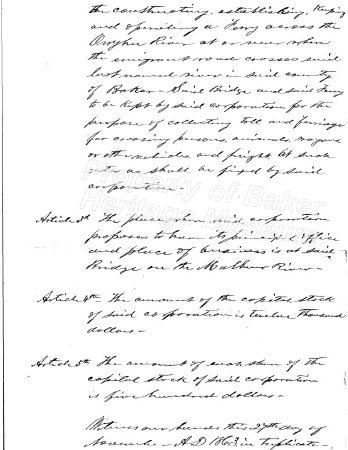 the constructing, establishing, keeping
and operating a Ferry across the
Owyhee River at or near where
the emigrant road crosses said
last named river in said county
of Baker - Said Bridge and said Ferry
to be kept by said corporation for the
purpose of collecting toll and ferriage
for crossing persons, animals, wagons,
or other vehicles, and freight at such
rates as shall be fixed by said
corporation -
Article 3d The place where said corporation
proposes to have its principal office
and place of business is at said
Bridge on the Malheur River -
Article 4th The amount of the capital stock
of said corporation is twelve thousand
dollars -
Article 5th The amount of each share of the
capital stock of said corporation
is five hundred dollars -
Witness our hands this 27th day of
November - A.D 1863 in triplicate -
of Baker
Heritage